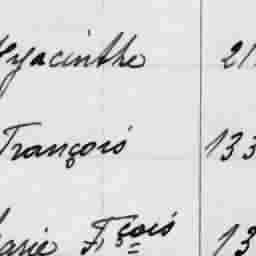 Hyacinthe 21
François 133
Marie Fçois 13